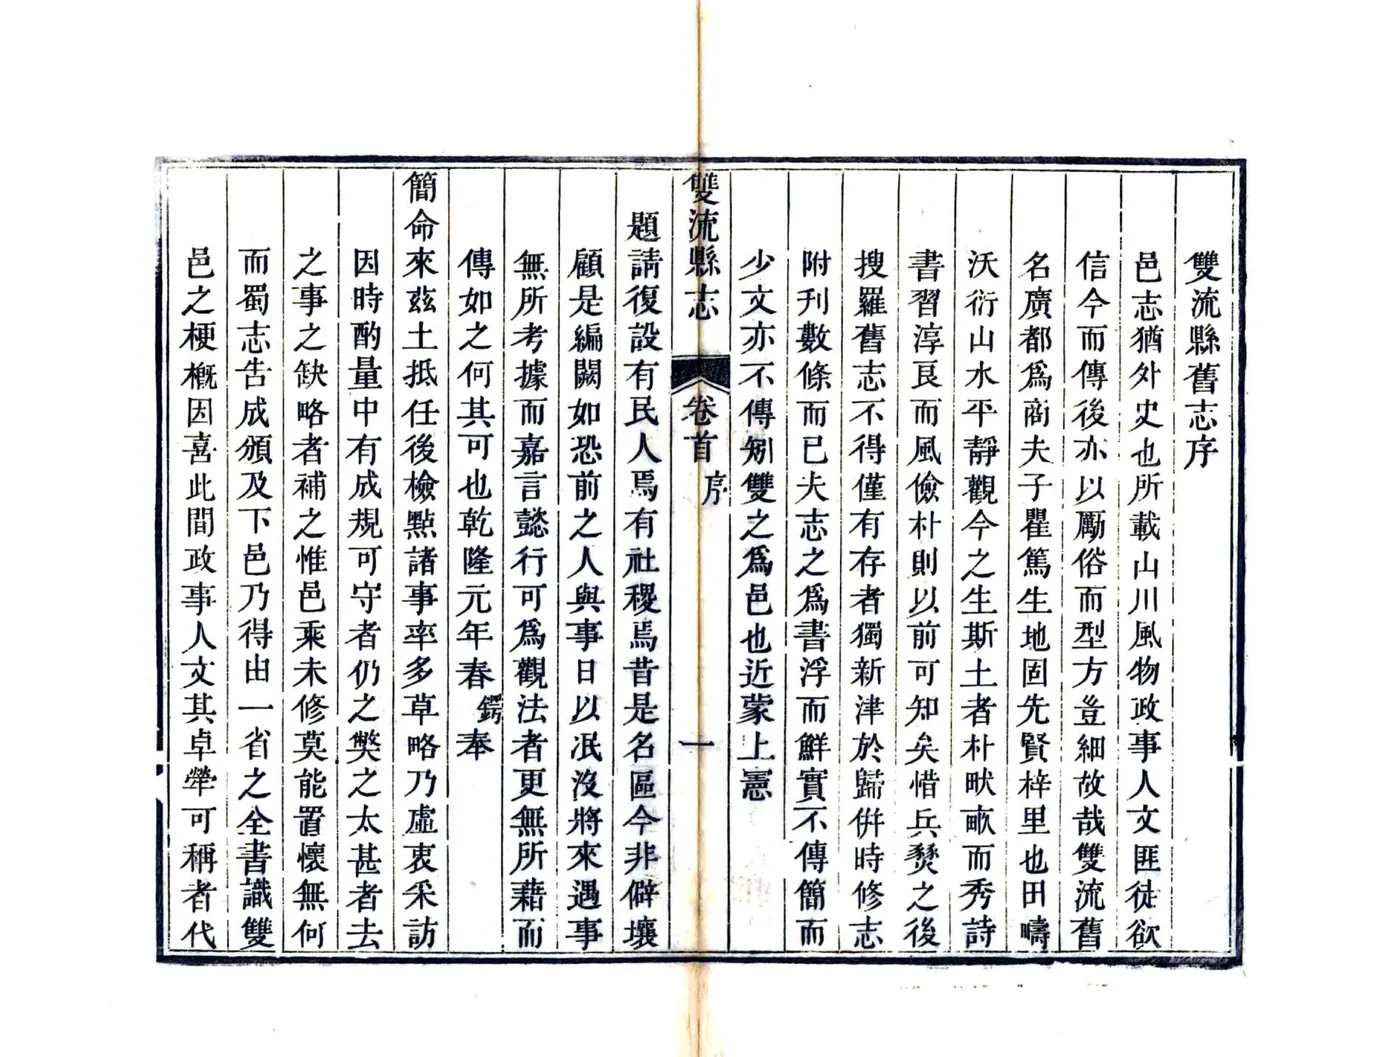 雙流縣舊志序
邑志猶外史也所載山川風物政事人文匪徒欲
信今而傳後亦以勵俗而型方豈細故哉雙流舊
名廣都爲商夫子瞿篤生地固先賢梓里也田疇
沃衍山水平靜觀今之生斯土者朴畎畝而秀詩
書習淳良而風儉朴則以前可知矣惜兵燹之後
搜羅舊志不得僅有存者獨新津於歸併時修志
附刊數條而已夫志之爲書浮而鮮實不傳簡而
少文亦不傳矧雙之爲邑也近蒙上憲
雙流縣志 卷首 序 一
題請復設有民人焉有社稷焉昔是名區今非僻壤
顧是編闕如恐前之人與事日以泯沒將來遇事
無所考據而嘉言懿行可爲觀法者更無所藉而
傳如之何其可也乾隆元年春鍔奉
簡命來茲土抵任後檢點諸事率多草略乃虛衷采訪
因時酌量中有成規可守者仍之獘之太甚者去
之事之缺略者補之惟邑乘未修莫能置懷無何
而蜀志告成頒及下邑乃得由一省之全書識雙
邑之梗槪因喜此間政事人文其卓犖可稱者代